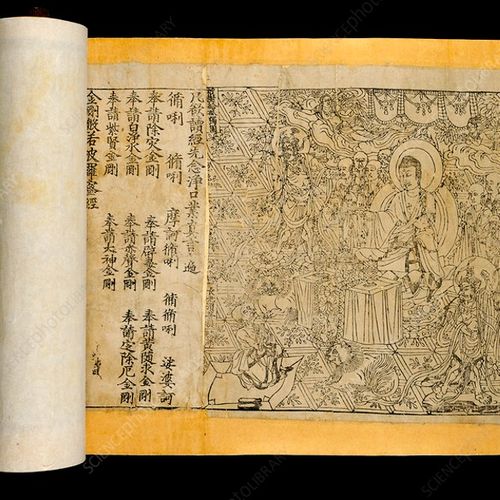 凡欲讀經先念淨口業真言一遍
脩唎 脩唎 摩訶脩唎 脩脩唎 娑婆訶
奉請除灾金剛 奉請辟毒金剛 奉請黃隨求金剛
奉請白淨水金剛 奉請赤聲金剛 奉請定除厄金剛
奉請紫賢金剛 奉請大神金剛
金剛般若波羅蜜經
SCIENCEPHOTOLIBRARY